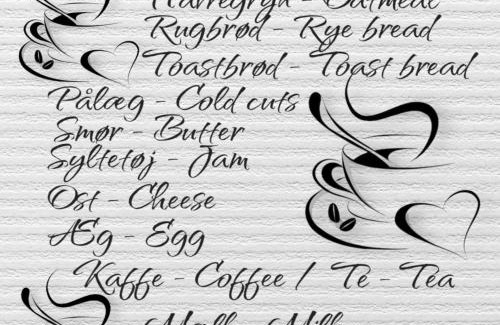 Havregryn - Oatmeal
Rugbrød - Rye bread
Toastbrød - Toast bread
Pålæg - Cold cuts
Smør - Butter
Syltetøj - Jam
Ost - Cheese
Æg - Egg
Kaffe - Coffee / Te - Tea